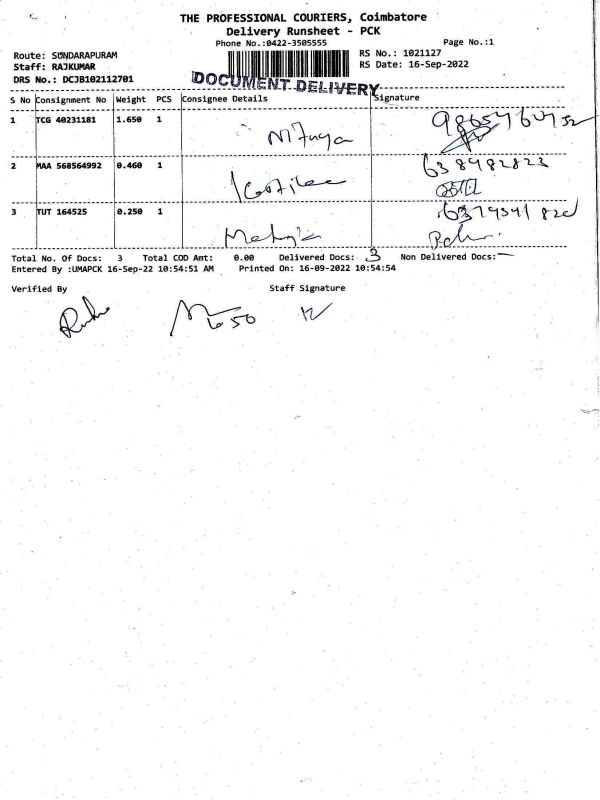 THE PROFESSIONAL COURIERS, Coimbatore
Delivery Runsheet - PCK
Phone No.:0422-3505555 Page No.:1
Route: SUNDARAPURAM RS No.: 1021127
Staff: RAJKUMAR RS Date: 16-Sep-2022
DRS No.: DCJB102112701
DOCUMENT DELIVERY
S No Consignment No Weight PCS Consignee Details Signature
1 TCG 40231181 1.650 1
2 MAA 568564992 0.460 1
3 TUT 164525 0.250 1
Total No. Of Docs: 3 Total COD Amt: 0.00 Delivered Docs: 3 Non Delivered Docs: —
Entered By :UMAPCK 16-Sep-22 10:54:51 AM Printed On: 16-09-2022 10:54:54
Verified By Staff Signature